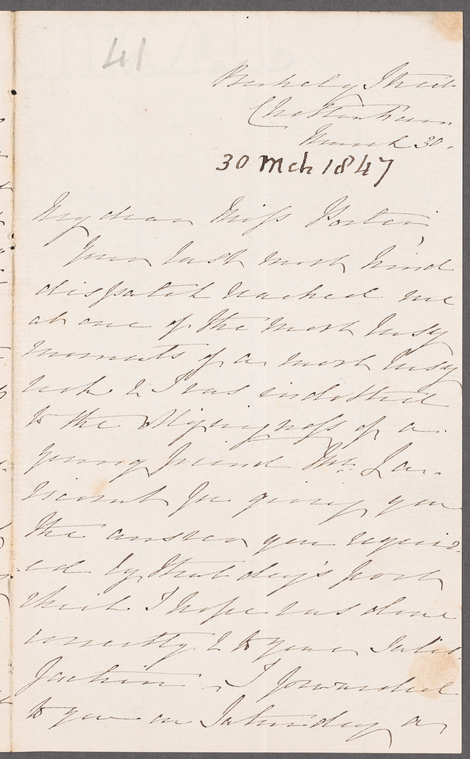 41
Berkeley Street
Cheltenham
March 30.
30 Mch 1847
My dear Miss Porter,
Your last most kind
dispatch reached me
at one of the most busy
moments of a most busy
week & I was indebted
to the obligingness of a
young friend
for giving you
the answer you requir-
ed by that day's post
which I hope was done
correctly & to your satis
faction. I forwarded
to you on Saturday a